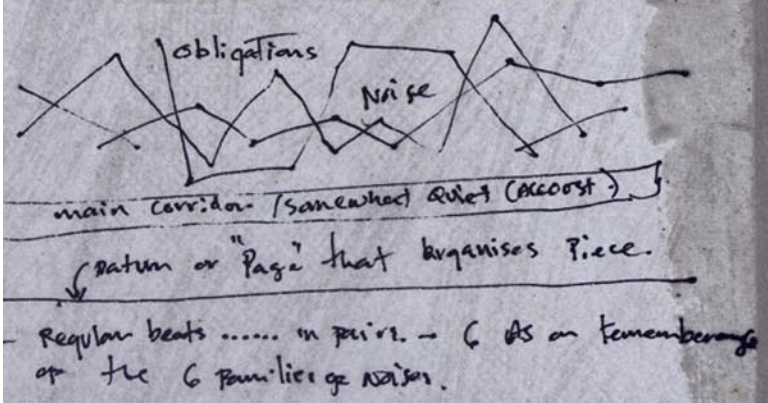 obligations
Noise
main corridor /somewhat Quiet (Accoust.)
Datum or "Page" that organises Piece.
- Regular beats ...... in pairs. - 6 As an remembrance
of the 6 families of Noises.